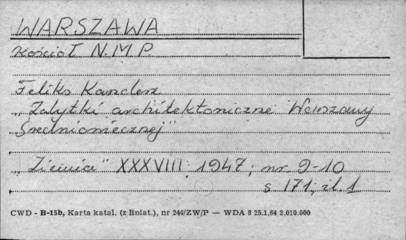 WARSZAWA
Kościoł N.M.P.
Feliks Kanclerz
"Zabytki architektoniczne Warszawy
Średniowiecznej"
"Ziemia" XXXVIII 1947; nr. 9-10
s 171, il. 1
CWD - B-15b, Karta katal. (z liniat.), nr 244/ZW/P — WDA 8 25.1,64 2.010.000